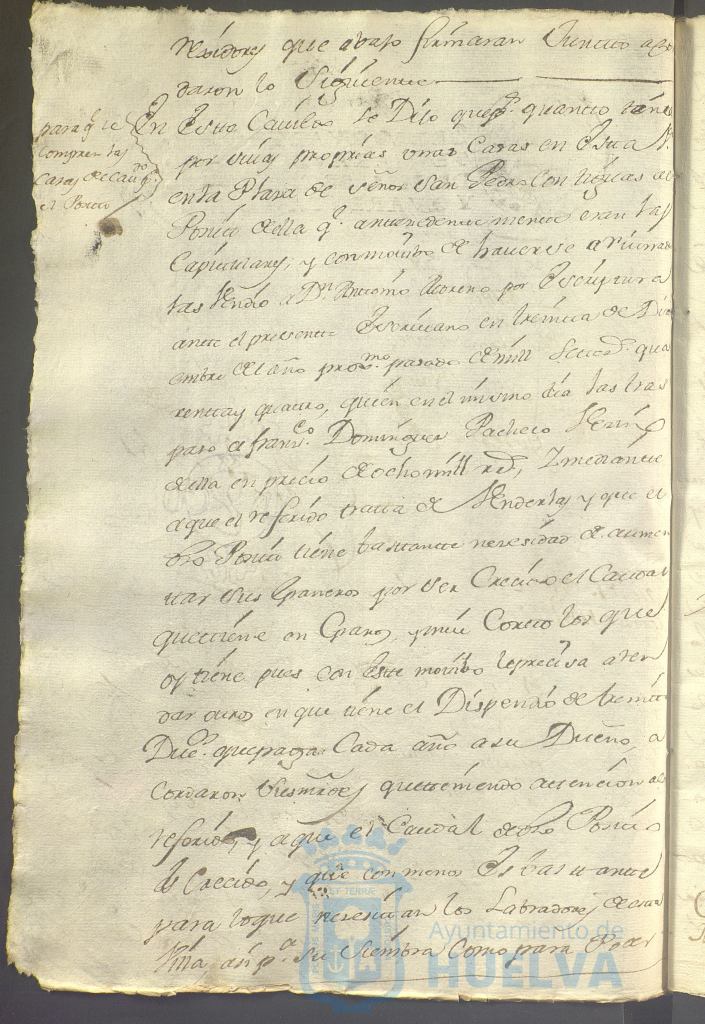 rexidores que abajo firmaran Juntto acor
daron lo siguiente
para q.e se
compren las
Casas de Cau.do q.
el Posito
En Este Cavildo se Dijo que p.r quantto
por suias proprias unas Casas en Esta V.a
en la Plaza de señor San Pedro Contiguas al
Posito della q.e antecedentemente eran las
Capitulares, y con motibo de haverse arruinado
las Vendio a D.n Antonio Moreno por Escriptura
ante el presente Escrivano en treinta de Dizi
embre del año prox.mo pasado de mill Settez.s qua
renta y quatro, quien en el mismo dia las tras
paso a fran.co Dominguez Pacheco Vezino
della en precio de ocho mill r.s, Y mediante
a que el referido tratta de Venderlas y que el
dho Posito tiene bastante nezesidad de aumen
tar sus Graneros por ser Crecido el Caudal
que tiene en Granos, y mui Corto los que
oy tiene pues con este motibo le precisa arren
dar otros en que tiene el Dispendio de treinta
Duc.s que paga Cada año a su Dueño, a
cordaron sus mrdes que teniendo attencion al
referido, y a que el Caudal de dho Posito
es Crecido, y que con menos Es bastante
para lo que necesitan los Labradores de esta
Villa, asi p.a su siembra Como para
Ayuntamiento de
HUELVA